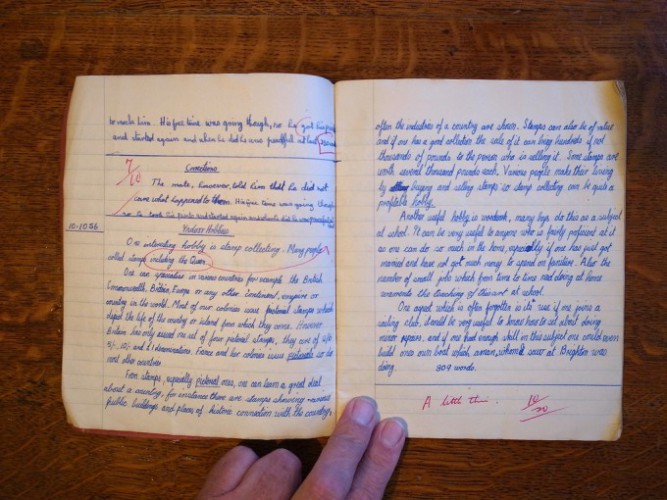 to mark him. His free time was going though, so he got his
and started again and when he did he was punctual at last
7/10
Corrections
The mate, however, told him that he did not
care what happened to them. His free time was going though
so he took his and started again and when he did he was
10-10-56
Indoor Hobbies
One interesting hobby is stamp collecting. Many people
collect stamps including the Queen.
One can specialise in various countries for example the British
Commonwealth, Britain, Europe or any other continent, empire or
country in the world. Most of our colonies issue pictorial stamps which
depict the life of the country or island from which they come. However
Britain has only issued one set of four pictorial stamps, they are of 2/6
5/-, 10/- and £1 denominations. France and her colonies issue pictorials as do
most other countries.
From stamps, especially pictorial ones, one can learn a great deal
about a country, for instance there are stamps showing various
public buildings and places of historic connection with the country,
often the industries of a country are shown. Stamps can also be of value
and if one has a good collection the sale of it can bring hundreds if not
thousands of pounds to the person who is selling it. Some stamps are
worth several thousand pounds each. Various people make their living
by buying and selling stamps so stamp collecting can be quite a
profitable hobby.
Another useful hobby is woodwork, many boys do this as a subject
at school. It can be very useful to anyone who is fairly proficient at it
as one can do so much in the home, especially if one has just got
married and has not got much money to spend on furniture. Also the
number of small jobs which from time to time need doing at home
warrants the teaching of this art at school.
One aspect which is often forgotten is its use if one joins a
sailing club, it would be very useful to know how to set about doing
minor repairs, and if one had enough skill in this subject one could even
build one's own boat which, a man, whom I saw at Brighton was
doing. 309 words.
A little thin. 10/20